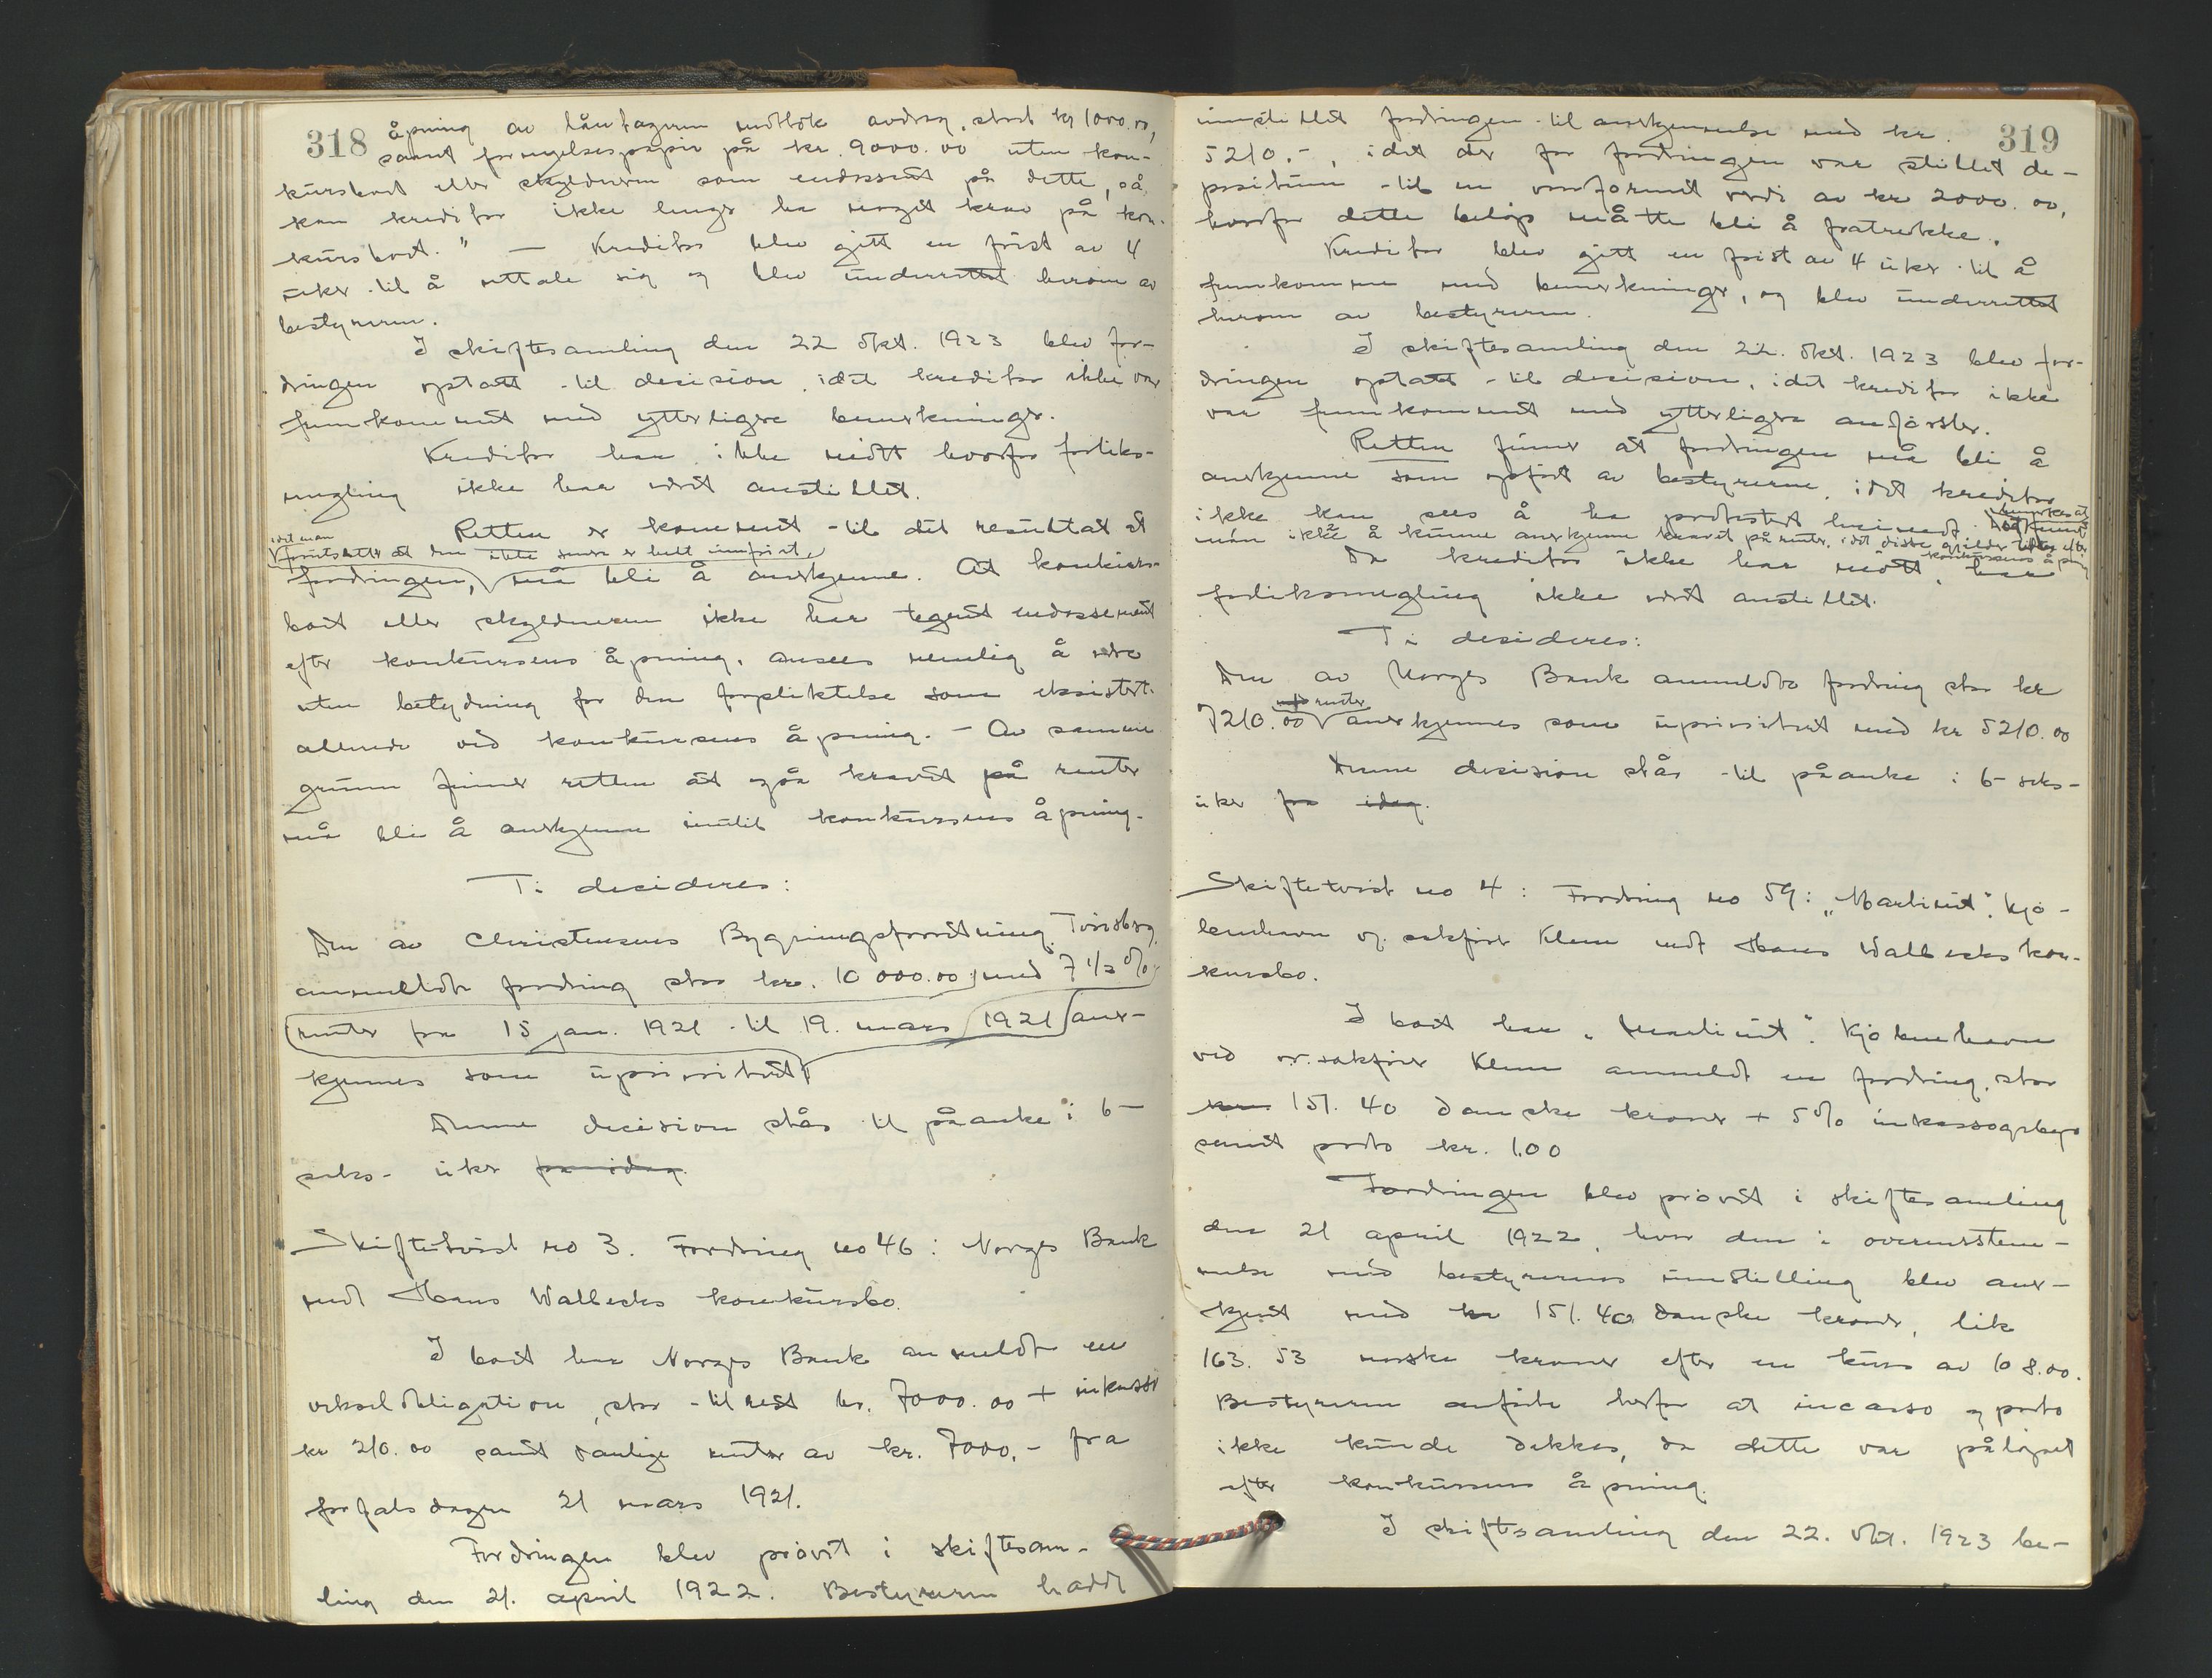 318
åpning av låntageren mottok avdrag, stort kr 1000.00,
samt fornyelsespapir på kr. 9000.00 uten kon-
kursboet eller skyldneren som endossent på dette, så
kan kreditor ikke lenger ha noget krav på kon-
kursboet." — Kreditor blev gitt en frist av 4
uker til å uttale sig og blev underrettet herom av
bestyreren.
I skiftesamling den 22 okt. 1923 blev for-
dringen optatt til decision, idet kreditor ikke var
fremkommet med ytterligere bemerkninger.
Kreditor har ikke møtt hvorfor forliks-
megling ikke har vært anstillet.
Retten er kommet til det resultat at
idet man
forutsetter at den ikke senere er helt innfriet,
fordringen, må bli å anerkjenne. At konkurs-
boet eller skyldneren ikke har tegnet endossement
efter konkursens åpning, ansees nemlig å være
uten betydning for den forpliktelse som eksisterte
allerede ved konkursens åpning. — Av samme
grunn finner retten at også kravet på renter
må bli å anerkjenne inntil konkursens åpning.
Ti decideres:
Den av Christensens Bygningsforretning, Tønsberg,
anmeldte fordring stor kr. 10 000.00 med 7 1/2 %
renter fra 15 jan. 1921 til 19. mars 1921 aner-
kjennes som uprioritert
Denne decision står til påanke i 6-
seks- uker fra idag.
Skiftetvist no 3. Fordring no 46: Norges Bank
mot Hans Wallecks konkursbo.
I boet har Norges Bank anmeldt en
vekselobligation, stor til rest kr. 7000.00 + inkasso
kr 210.00 samt vanlige renter av kr. 7000,- fra
forfalsdagen 21 mars 1921.
Fordringen blev prøvet i skiftesam-
ling den 21. april 1922. Bestyreren hadde
319
innstillet fordringen til anerkjennelse med kr
5210.-, idet der for fordringen var stillet de-
positum til en verdi av kr 2000.00,
hvorfor dette beløp måtte bli å fratrekke.
Kreditor blev gitt en frist av 4 uker til å
fremkomme med bemerkninger, og blev underrettet
herom av bestyreren.
I skiftesamling den 22. okt. 1923 blev for-
dringen optatt til decision, idet kreditor ikke
var fremkommet med ytterligere anførsler.
Retten finner at fordringen må bli å
anerkjenne som opført av bestyrerne, idet kreditor
ikke kan sees å ha protestert herimot.
bemerkes at
ikke å kunne anerkjenne kravet på renter, idet disse gjelder tiden efter
konkursens åpning
Da kreditor ikke har møtt, har
forliksmegling ikke vært anstillet.
Ti decideres:
Den av Norges Bank anmeldte fordring stor kr
med renter
7210.00 anerkjennes som uprioritert med kr 5210.00
Denne decision står til påanke i 6- seks-
uker fra idag.
Skiftetvist no 4: Fordring no 59: "Martinit". Kjø-
benhavn v. sakfører Klem mot Hans Wallecks kon-
kursbo.
I boet har "Martinit". Kjøbenhavn
ved or. sakfører Klem anmeldt en fordring, stor
kr. 151.40 danske kroner + 5% inkassogebyr
samt porto kr. 1.00
Fordringen blev prøvet i skiftesamling
den 21 april 1922, hvor den i overensstem-
melse med bestyrernes innstilling blev aner-
kjent med kr 151.40 danske kroner, lik
163.53 norske kroner efter en kurs av 108.00.
Bestyreren anførte herfor at incasso og porto
ikke kunde dekkes, da dette var påløpet
efter konkursens åpning.
I skiftesamling den 22. okt. 1923 be-